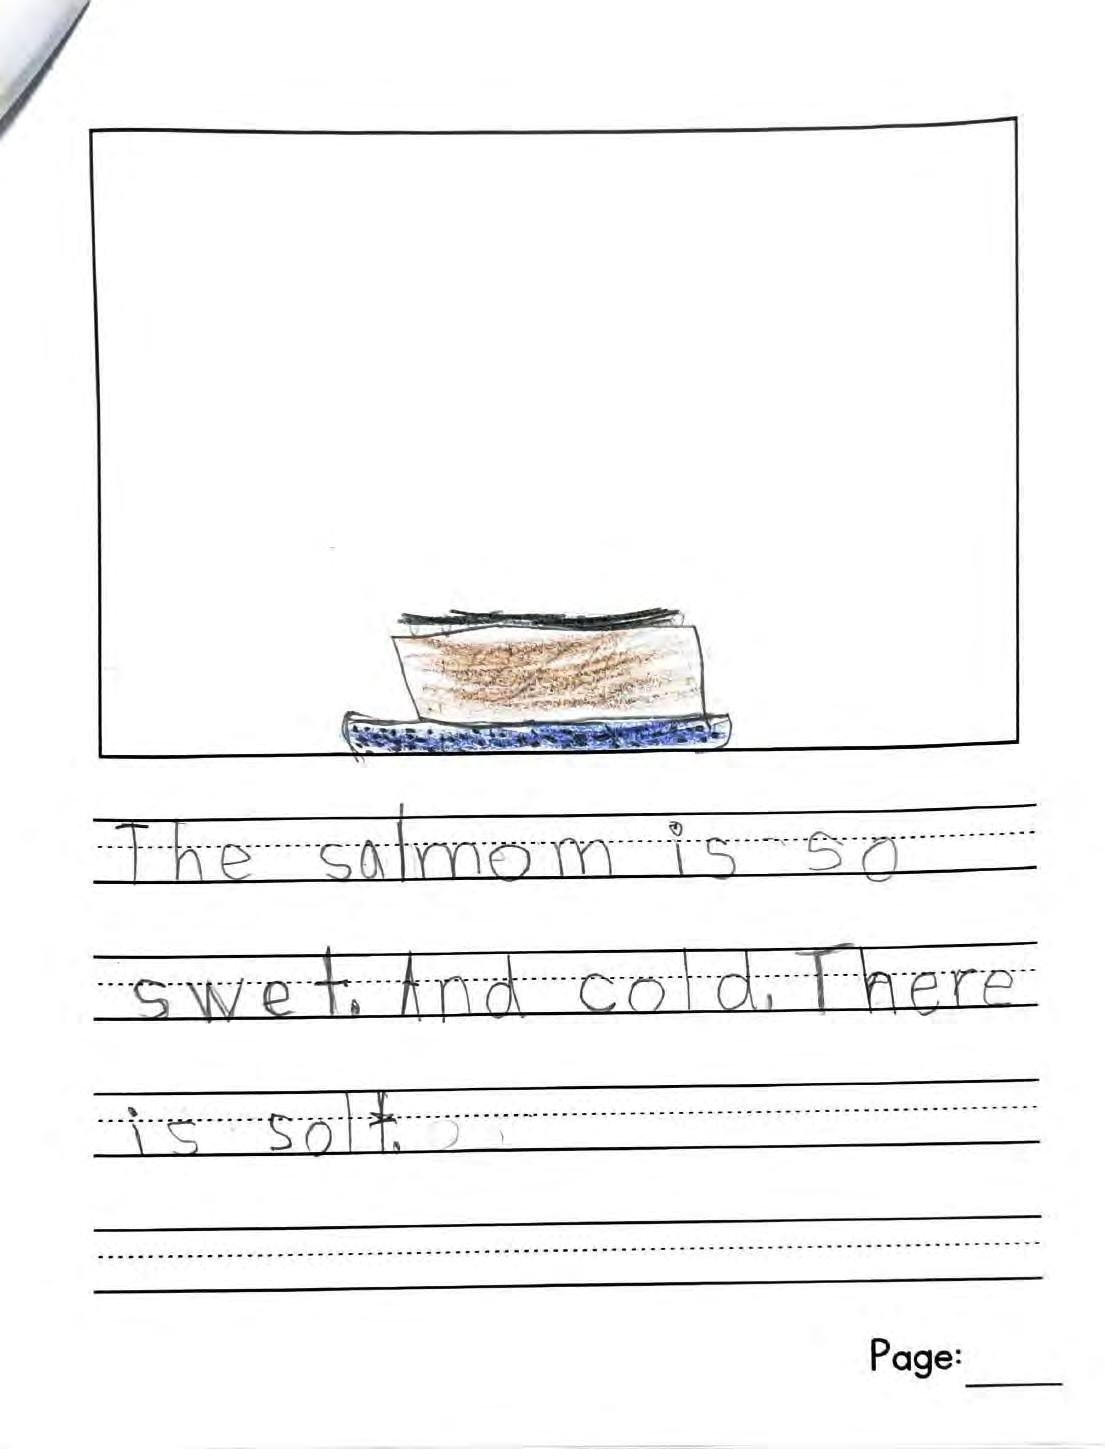 The salmom is so
swet. And cold. There
is solt.
Page: